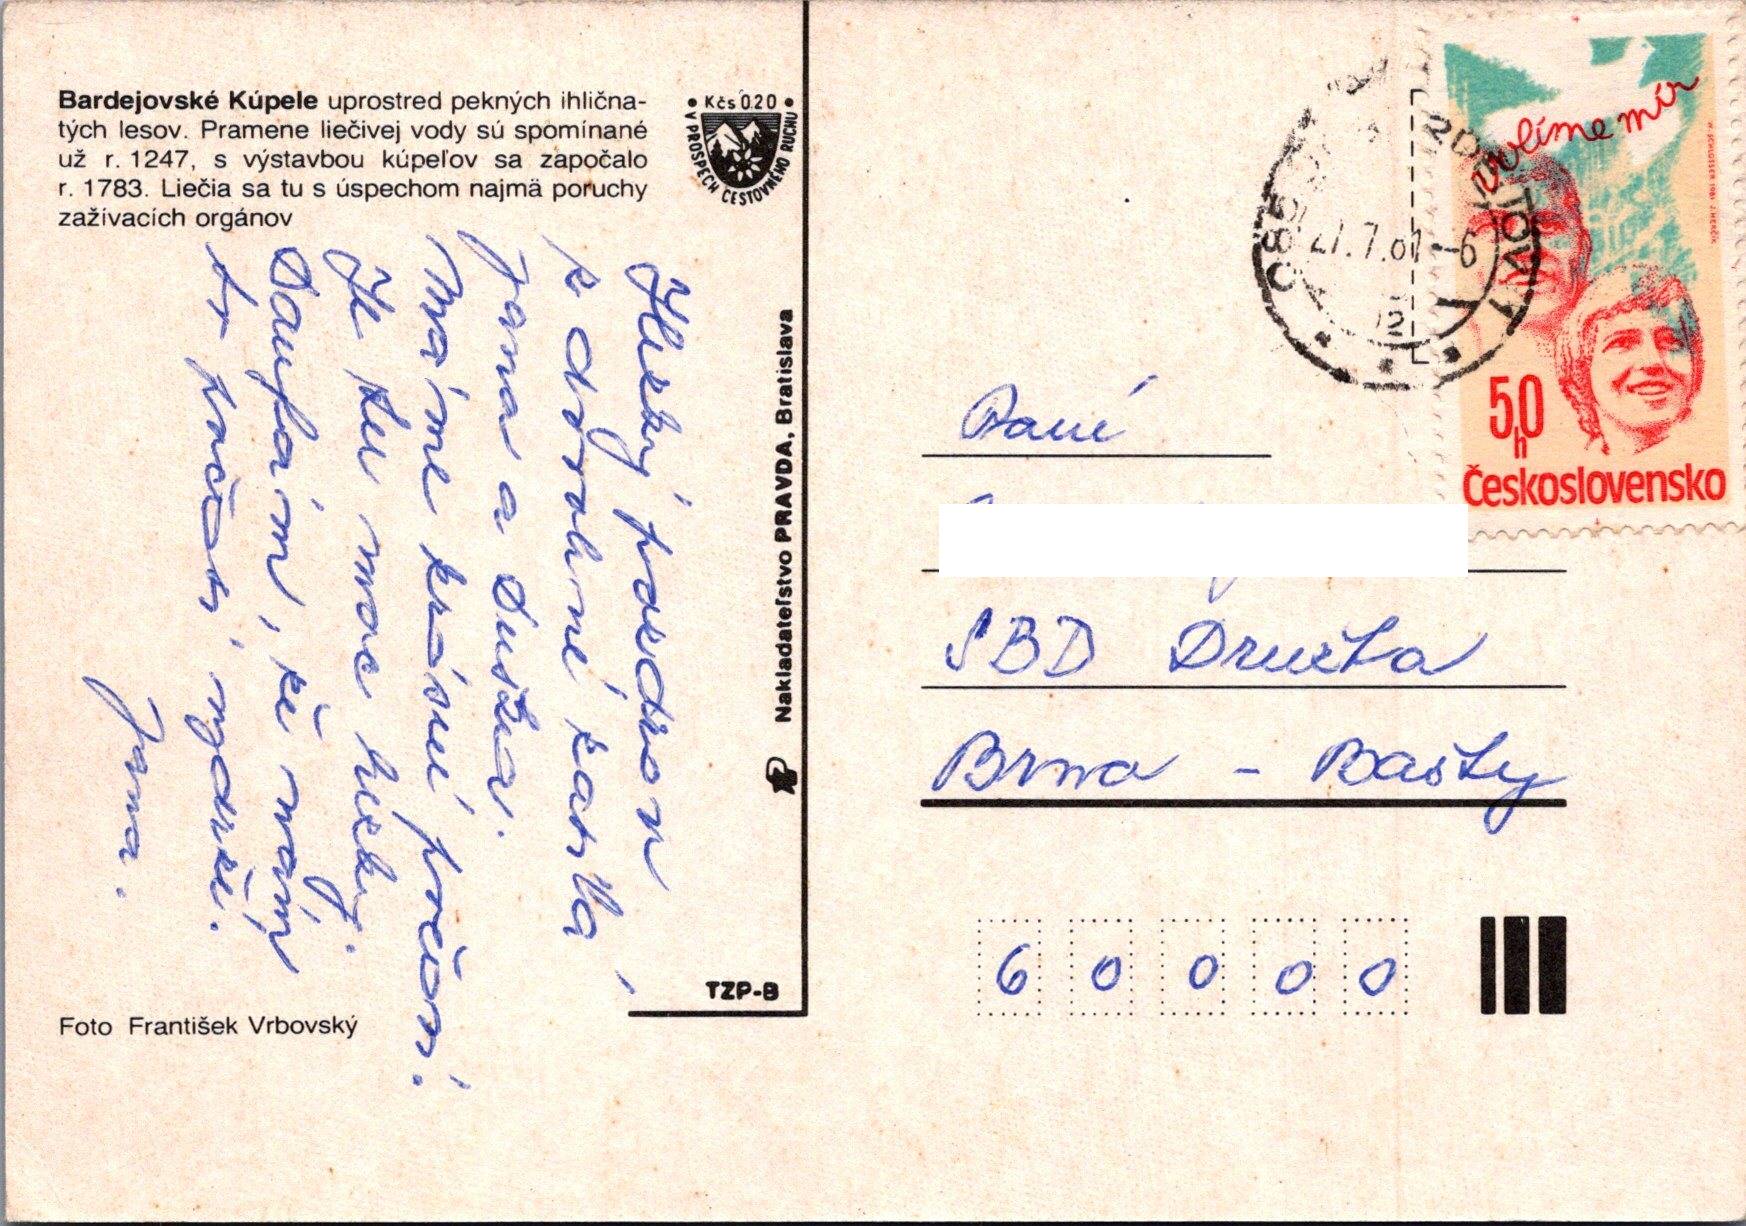 Bardejovské Kúpele uprostred pekných ihlična-
tých lesov. Pramene liečivej vody sú spomínané
už r. 1247, s výstavbou kúpeľov sa započalo
r. 1783. Liečia sa tu s úspechom najmä poruchy
zažívacích orgánov
• Kčs 0.20 •
V PROSPECH CESTOVNÉHO RUCHU
Hezký pozdrav
z dovolené zasílá
Jana a Dušan.
Máme krásné počasí.
Je tu moc hezky.
Doufám, že nám
to počasí vydrží.
Jana.
Foto František Vrbovský
Nakladateľstvo PRAVDA, Bratislava
TZP-B
volíme mír
50
h
Československo
27.7.81-6
Paní
SBD Družba
Brno - Bašty
6 0 0 0 0